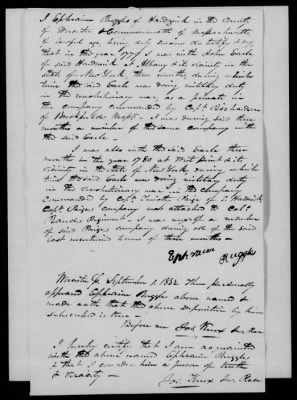 I Ephraim Ruggles of Hardwick in the County
of Worcester & Commonwealth of Massachusetts
of lawful age being duly sworn do testify & say
that in the year 1779 I was with John Earle
of said Hardwick at Albany & its vicinity in the
State of New York, three months during which
time the said Earle was doing military duty
in the revolutionary war as a private in
the company commanded by Capt.
of Brookfield Mass - I was during said three
months a member of the same company with
the said Earle -
I was also with the said Earle three
months in the year 1780 at West Point & its
vicinity in the State of New York, during which
time the said Earle was doing military duty
in the revolutionary war in the company
commanded by Capt. Timothy Paige of Hardwick
Capt. Paiges Company was attached to Col.
Rands Regiment - I was myself a member
of said Paiges company during all of the said
last mentioned term of three months -
Ephraim Ruggles
Worcester Ss September 1. 1832. Then personally
appeared Ephraim Ruggles above named &
made oath that the above deposition by him
subscribed is true -
Before me Jos. Knox Jus. Peace
I hereby certify that I am acquainted
with the above named Ephraim Ruggles
& that I consider him a person of truth
& veracity -
Jos. Knox Jus. Peace